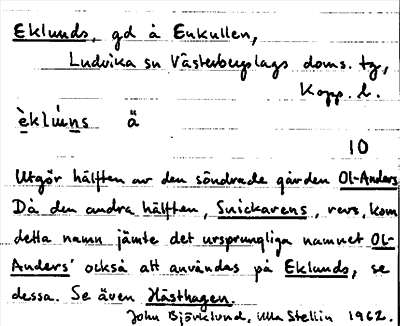 Eklunds, gd å Enkullen,
Ludvika sn Västerbergslags doms. tg,
Kopp. l.
èklúns ä
10
Utgör hälften av den söndrade gården Ol-Anders
Då den andra hälften, Snickarens, revs, kom
detta namn jämte det ursprungliga namnet Ol-
Anders' också att användas på Eklunds, se
dessa. Se även Hästhagen.
John Björklund, Ulla Stellin 1962.